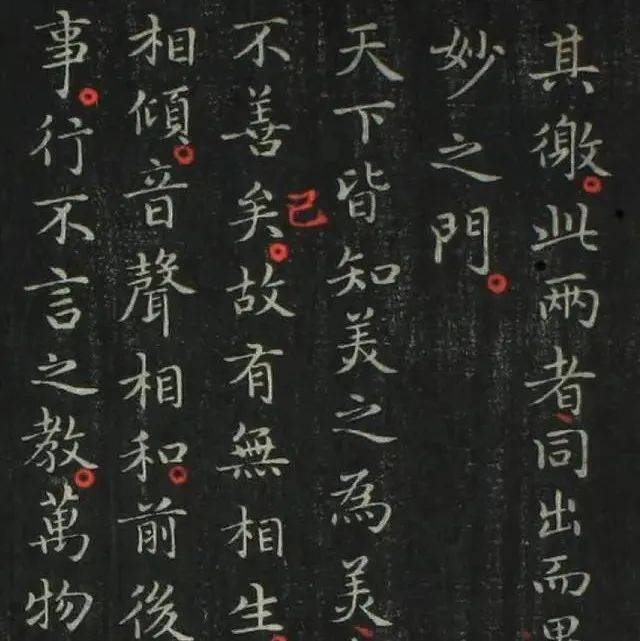 其徼此兩者同出而異
妙之門
天下皆知美之為美
不善矣已故有無相生
相傾音聲相和前後
事行不言之教萬物